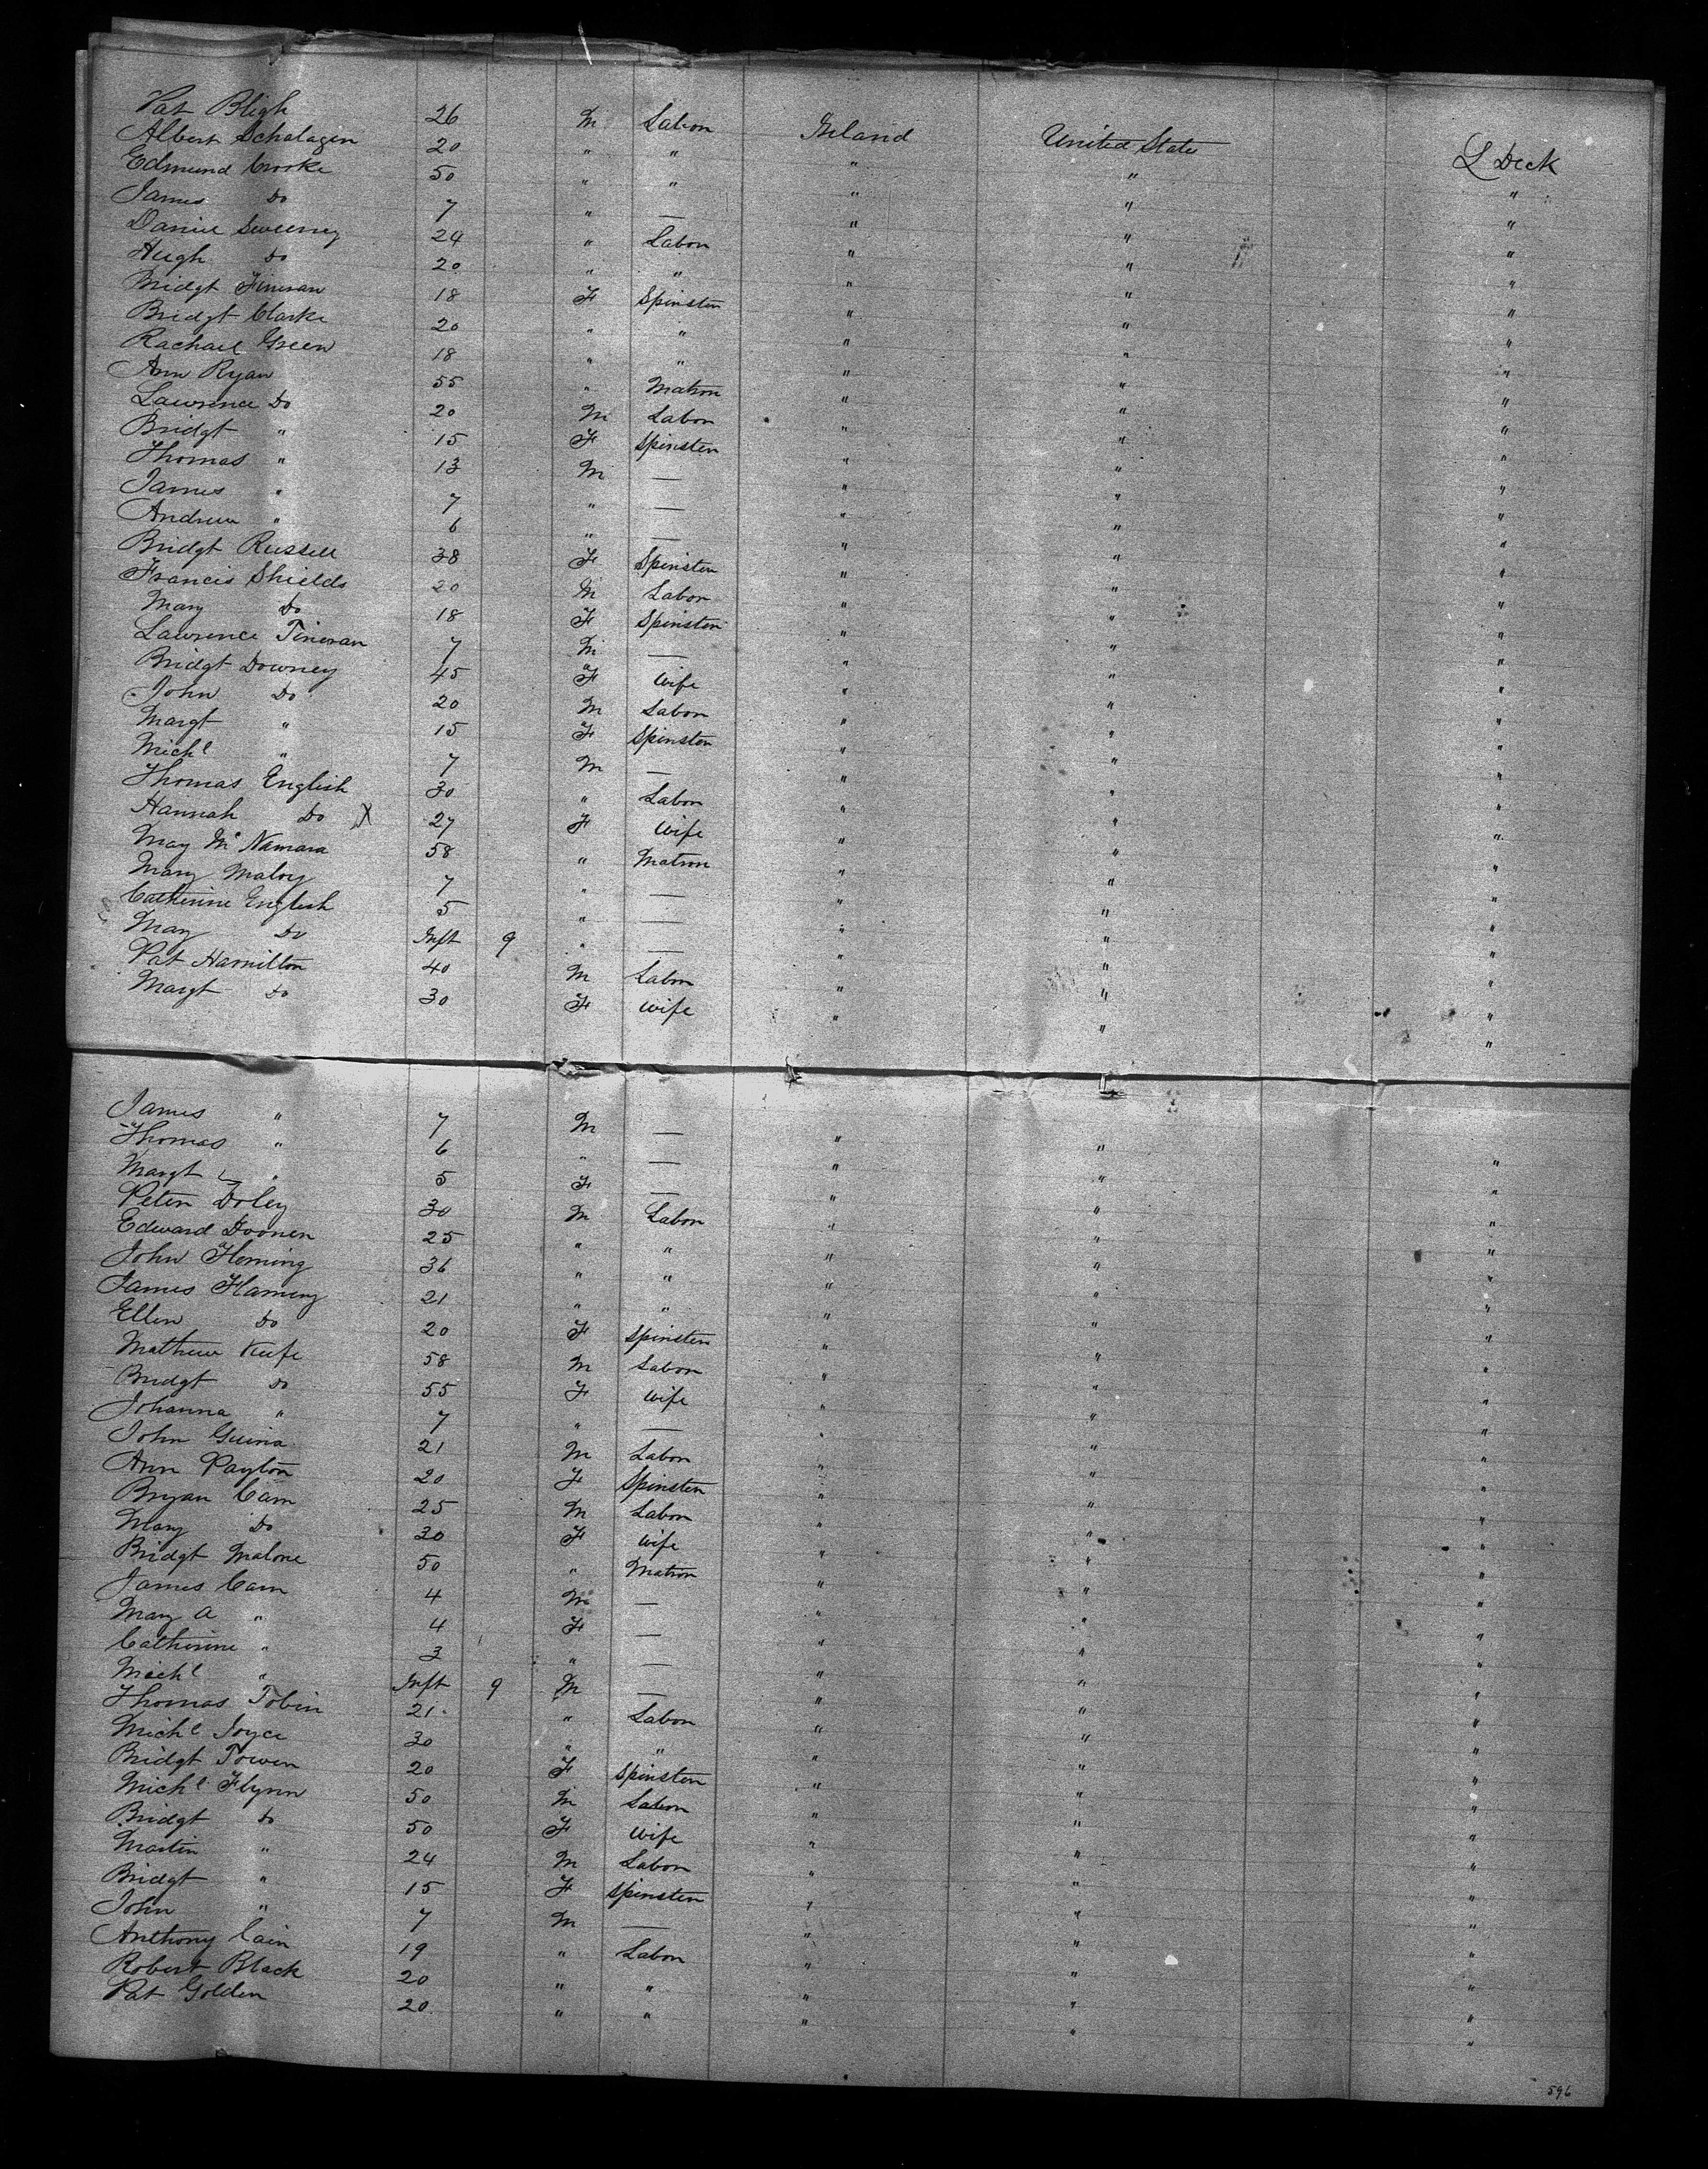 Pat Bligh 26 M Labor Ireland United State L Deck
Albert Schalagen 20 " " " " "
Edmund Crooke 50 " " " " "
James Do 7 " — " " "
Daniel Sweeney 24 " Labor " " "
Hugh Do 20 " " " " "
Bridgt Fineran 18 F Spinster " " "
Bridgt Clarke 20 " " " " "
Rachael Green 18 " " " " "
Ann Ryan 55 " Matron " " "
Lawrence Do 20 M Labor " " "
Bridgt " 15 F Spinster " " "
Thomas " 13 M — " " "
James " 7 " — " " "
Andrew " 6 " — " " "
Bridgt Russell 38 F Spinster " " "
Francis Shields 20 M Labor " " "
Mary Do 18 F Spinster " " "
Lawrence Fineran 7 M — " " "
Bridgt Downey 45 F Wife " " "
John Do 20 M Labor " " "
Margt " 15 F Spinster " " "
Michl " 7 M — " " "
Thomas English 30 " Labor " " "
Hannah Do X 27 F Wife " " "
May McNamara 58 " Matron " " "
Mary Maloy 7 " — " " "
Catherine English 5 " — " " "
May Do Inft 9 " — " " "
Pat Hamilton 40 M Labor " " "
Margt Do 30 F Wife " " "
James " 7 M — " " "
Thomas " 6 " — " " "
Margt " 5 F — " " "
Peter Doley 30 M Labor " " "
Edward Doonen 25 " " " " "
John Fleming 36 " " " " "
James Flaming 21 " " " " "
Ellen Do 20 F Spinster " " "
Mathew Keefe 58 M Labor " " "
Bridgt Do 55 F Wife " " "
Johanna " 7 " — " " "
John Guina 21 M Labor " " "
Ann Payton 20 F Spinster " " "
Bryan Cain 25 M Labor " " "
Mary Do 30 F Wife " " "
Bridgt Malone 50 " Matron " " "
James Cain 4 M — " " "
Mary A " 4 F — " " "
Catherine " 3 " — " " "
Michl " Inft 9 M — " " "
Thomas Tobin 21 " Labor " " "
Michl Joyce 30 " " " " "
Bridgt Tower 20 F Spinster " " "
Michl Flynn 50 M Labor " " "
Bridgt Do 50 F Wife " " "
Martin " 24 M Labor " " "
Bridgt " 15 F Spinster " " "
John " 7 M — " " "
Anthony Cain 19 " Labor " " "
Robert Black 20 " " " " "
Pat Golden 20 " " " " "
596